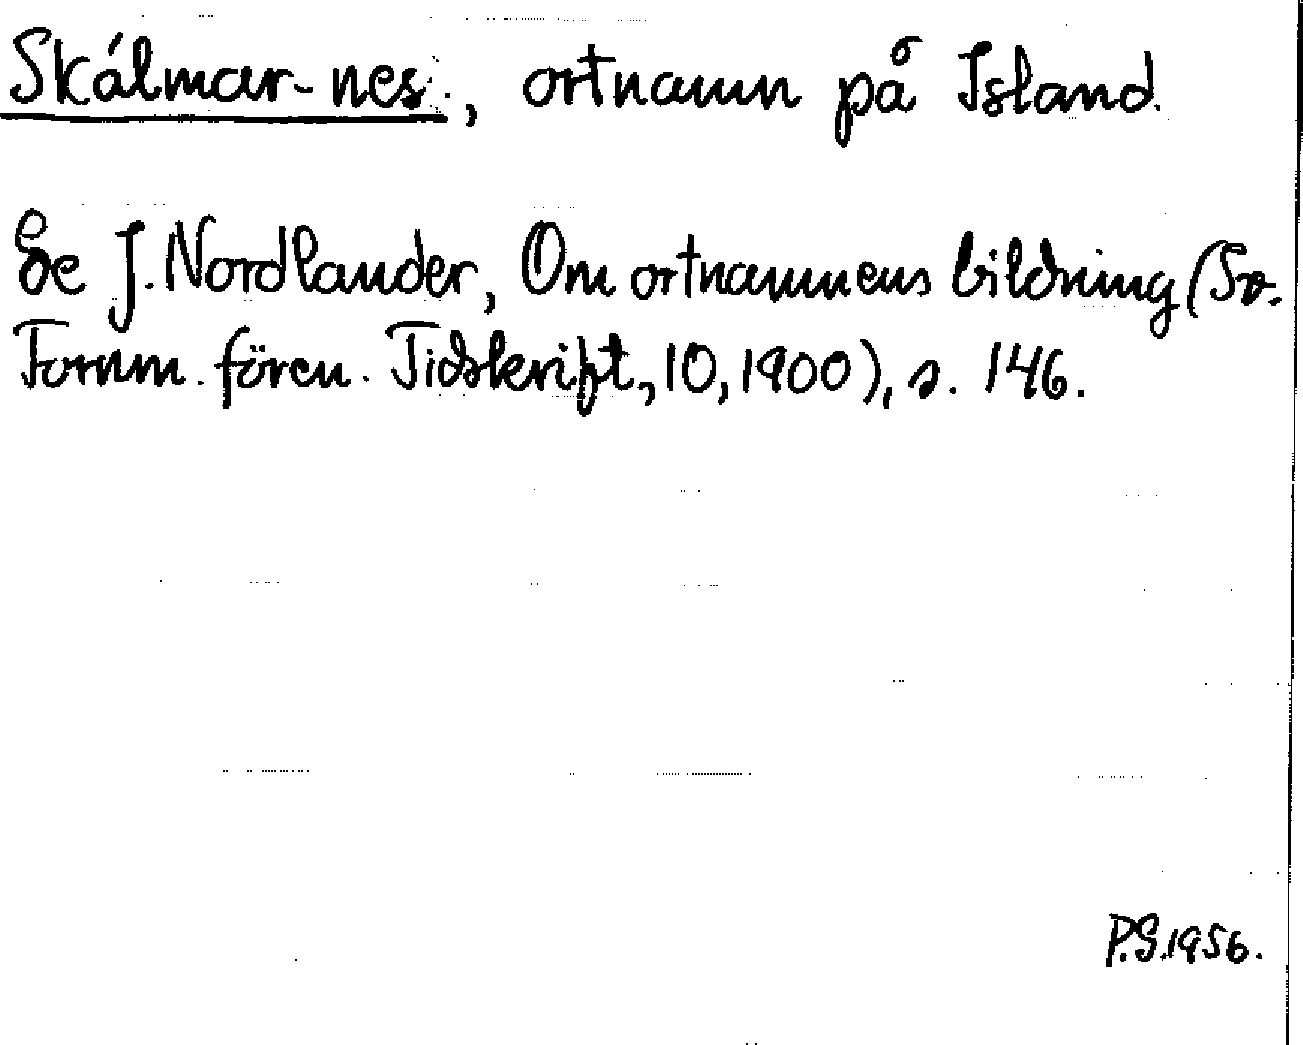 Skálmar-nes, ortnamn på Island.
Se J. Nordlander, Om ortnamnens bildning (Sv.
Fornm. fören. Tidskrift, 10, 1900), s. 146.
P.S.1956.